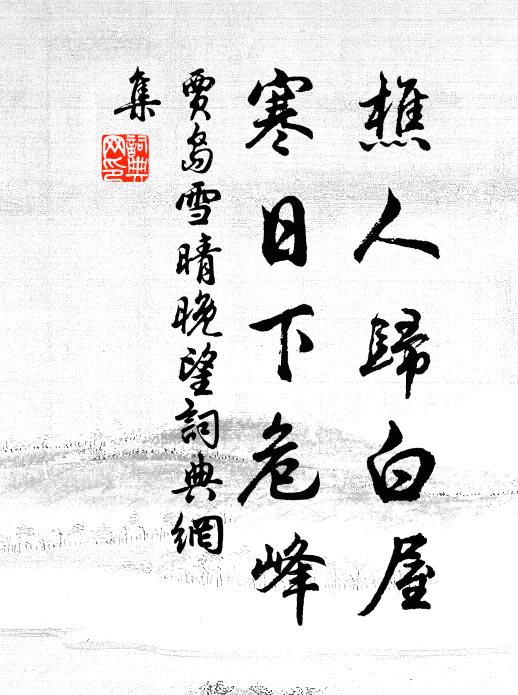 樵人歸白屋
寒日下危峰
賈島雪晴晚望詞典網
集
詞典
网印